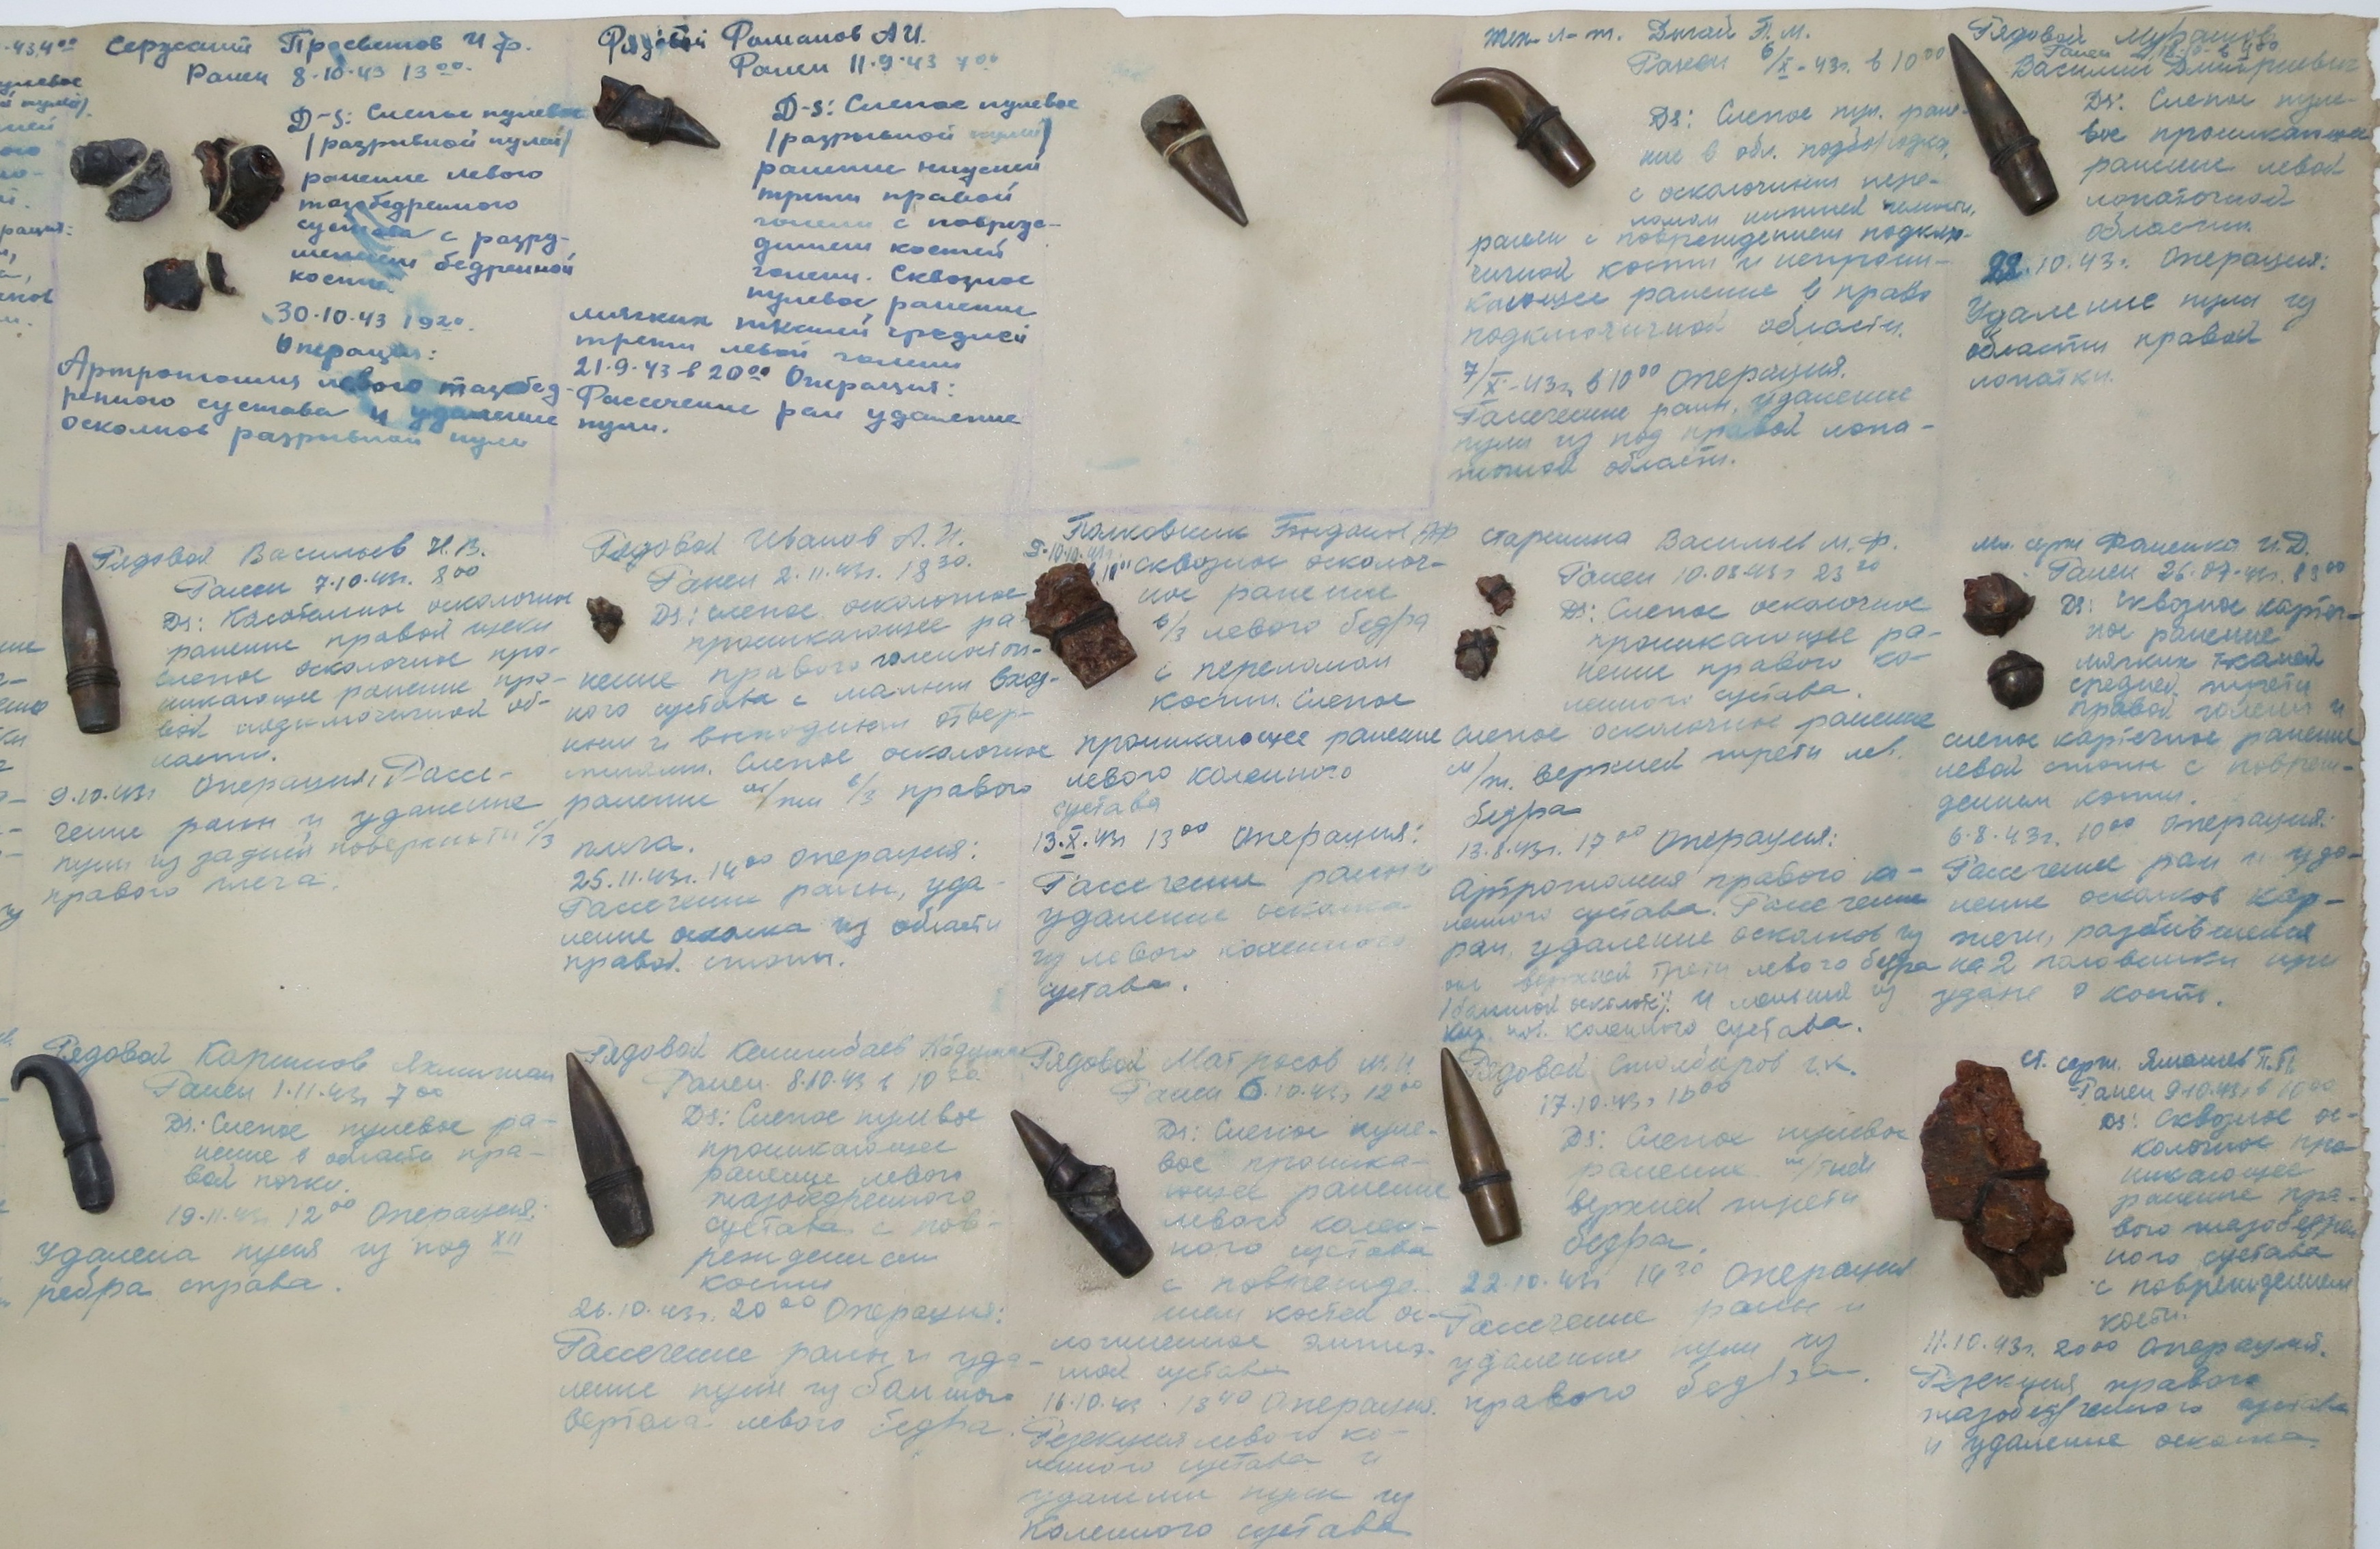 Сержант Просветов И.Ф.
Ранен 8.10.43 13⁰⁰.
D-S: Слепое пулевое
/разрывной пулей/
ранение левого
тазобедренного
сустава с разру-
шением бедренной
кости.
30.10.43 19²⁰.
Операция:
Артротомия левого тазобед-
ренного сустава и удаление
осколков разрывной пули
Рядовой Романов А.И.
Ранен 11.9.43 7⁰⁰
D-S: Слепое пулевое
/разрывной пулей/
ранение нижней
трети правой
голени с повреж-
дением костей
голени. Сквозное
пулевое ранение
мягких тканей средней
трети левой голени
21.9.43 в 20⁰⁰ Операция:
Рассечение ран удаление
пули.
Дигай П.М.
Ранен 6/X-43г. в 10⁰⁰
Ds: Слепое пул. ране-
ние в обл. подбородка,
с оскольчатым пере-
ломом нижней челюсти,
ранен с повреждением подъяз-
ычной кости и непрони-
кающее ранение в право
подключичной области.
7/X-43г. в 10⁰⁰ Операция.
Рассечение раны, удаление
пули из под правой лопа-
точной области.
Рядовой
Василий Дмитриевич
Ds: Слепое пуле-
вое проникающее
ранение левой
лопаточной
области.
22.10.43г. Операция:
Удаление пули из
области правой
лопатки.
Рядовой Васильев И.В.
Ранен 7.10.43г. 8⁰⁰
Ds: Касательное осколочное
ранение правой щеки
слепое осколочное про-
никающее ранение пра-
вой подключичной об-
ласти.
9.10.43г Операция: Рассе-
чение раны и удаление
пули из задней поверхности с/3
правого плеча.
Рядовой Иванов А.И.
Ранен 2.11.43г. 18³⁰.
Ds: Слепое осколочное
проникающее ра-
нение правого голеностоп-
ного сустава с малым вход-
ным и выходным отвер-
стиями. Слепое осколочное
ранение м/тк в/3 правого
плеча.
25.11.43г. 14⁰⁰ Операция:
Рассечение раны, уда-
ление осколка из области
правой стопы.
Полковник
сквозное осколоч-
ное ранение
в/3 левого бедра
с переломом
кости. Слепое
проникающее ранение
левого коленного
сустава
13.X.43г 13⁰⁰ Операция:
Рассечение раны и
удаление осколка
из левого коленного
сустава.
старшина Васильев М.Ф.
Ранен 10.08.43г 23²⁰
Ds: Слепое осколочное
проникающее ра-
нение правого ко-
ленного сустава.
слепое осколочное ранение
м/т. верхней трети лев.
бедра
13.8.43г. 17⁰⁰ Операция:
Артротомия правого ко-
ленного сустава. Рассечение
ран, удаление осколков из
верхней трети левого бедра
/большой осколок/ и меньший из
коленного сустава.
Мл. серж И.Д.
Ранен 26.07.43г.
Ds: Сквозное картеч-
ное ранение
мягких тканей
средней трети
правой голени и
слепое картечное ранение
левой стопы с повреж-
дением кости.
6.8.43г. 10⁰⁰ Операция:
Рассечение ран и уда-
ление осколков кар-
течи, разбившейся
на 2 половинки при
ударе о кость.
Рядовой Каримов
Ранен 1.11.43г 7⁰⁰
Ds: Слепое пулевое ра-
нение в области пра-
вой почки.
19.11.43г 12⁰⁰ Операция:
Удалена пуля из под XII
ребра справа.
Рядовой
Ранен 8.10.43 в 10
Ds: Слепое пулевое
проникающее
ранение левого
тазобедренного
сустава с пов-
реждением
кости
26.10.43г. 20⁰⁰ Операция:
Рассечение раны и уда-
ление пули из большого
вертела левого бедра.
Рядовой Матросов М.И.
Ранен 6.10.43г 12⁰⁰
Ds: Слепое пуле-
вое проника-
ющее ранение
левого колен-
ного сустава
с поврежде-
нием костей ос-
ложненное эмпие-
мой сустава
16.10.43 13⁴⁰ Операция.
Резекция левого ко-
ленного сустава и
удаление пули из
коленного сустава
Рядовой
17.10.43г
Ds: Слепое пулевое
ранение м/тк
верхней трети
бедра.
22.10.43г 14³⁰ Операция
Рассечение раны и
удаление пули из
правого бедра.
ст. серж.
Ранен 9.10.43г в 10⁰⁰
Ds: Сквозное ос-
колочное про
никающее
ранение пра-
вого тазобедрен
ного сустава
с повреждением
кости.
11.10.43г. 20⁰⁰ Операция.
Резекция правого
тазобедренного сустава
и удаление осколка.